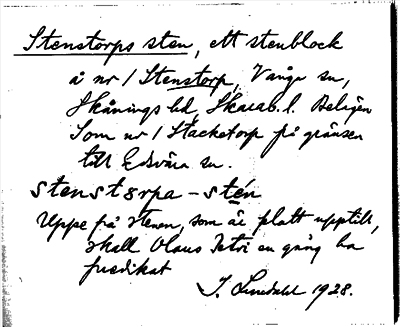 Stenstorps sten, ett stenblock
å nr 1 Stenstorp, Vånga sn,
Skånings hd, Skarab. l. Belägen
som nr 1 Stacketorp på gränsen
till Edsvära sn.
stenstɘrpa-stén
Uppe på stenen, som är platt upptill,
skall Olaus Petri en gång ha
predikat
J. 1928.